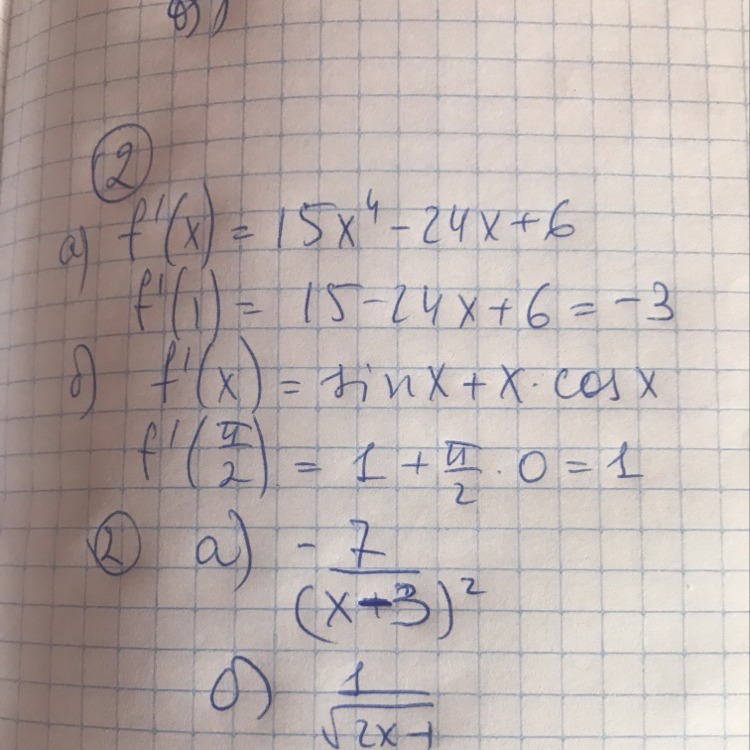 ②
а) f'(x) = 15x⁴ - 24x + 6
f'(1) = 15 - 24x + 6 = -3
б) f'(x) = sin x + x · cos x
f'(π/2) = 1 + π/2 · 0 = 1
② а) - 7/(x-3)²
б) 1/√(2x-1)